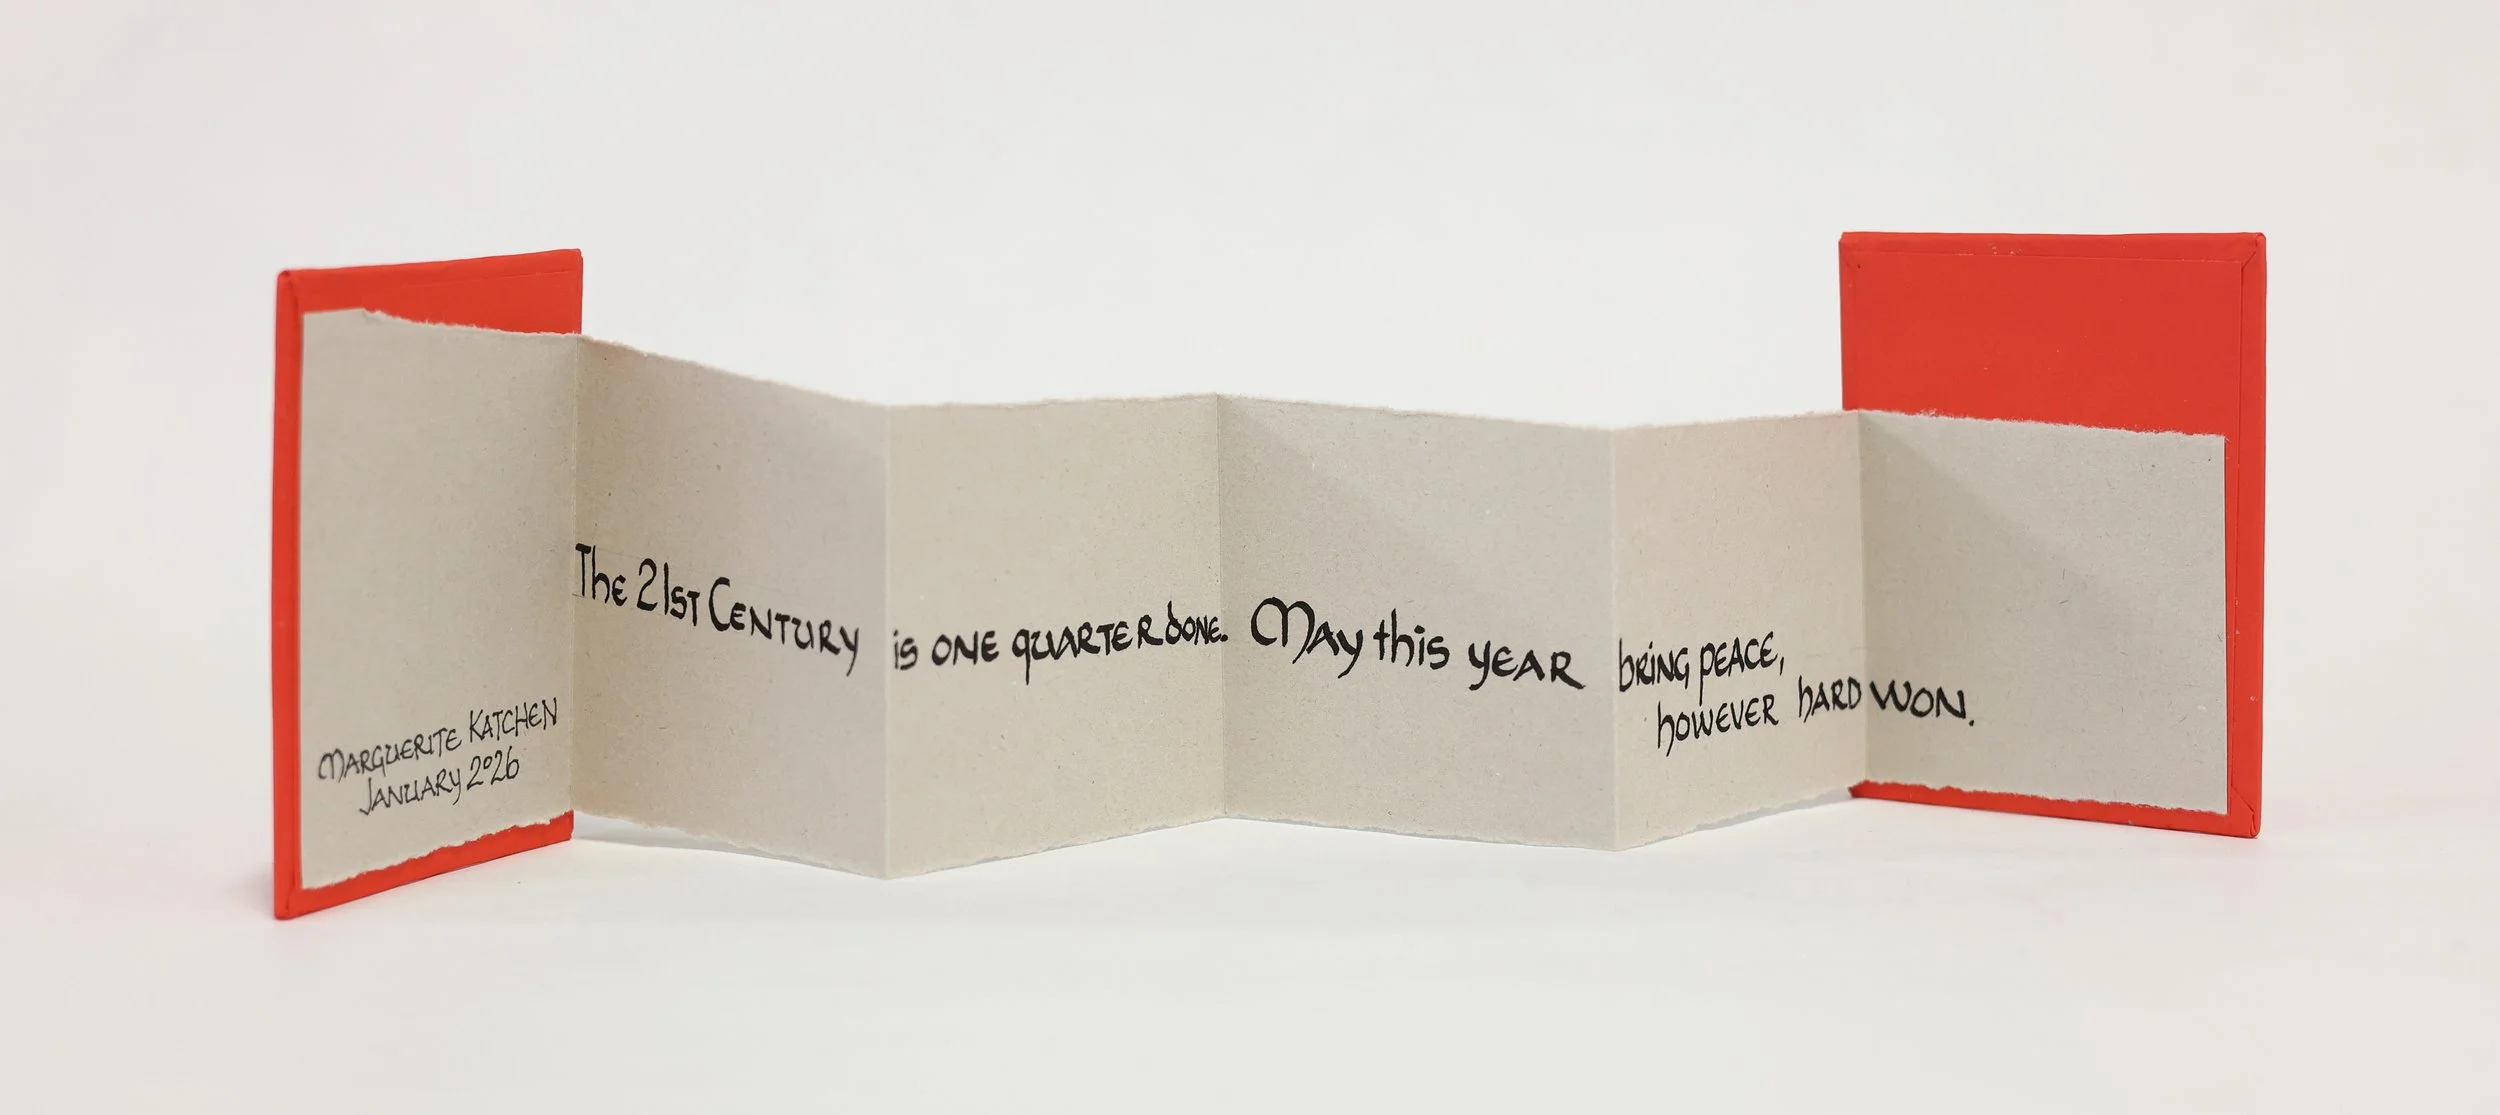 Marguerite Katchen
January 2026
The 21st Century is one quarter done. May this year bring peace,
however hard won.